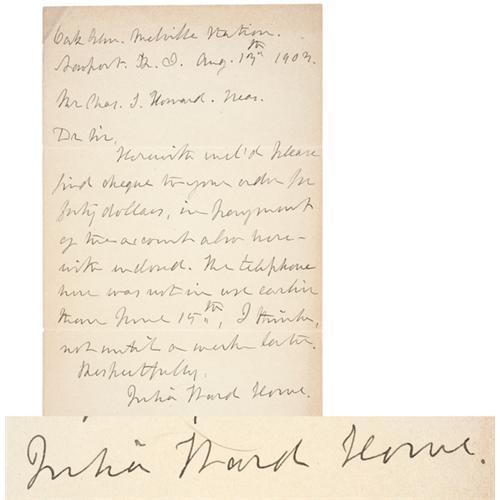 Oak Glen. Melville Station.
Newport R. I. Aug. 13th 1903.
Mr Chas. T. Howard. Treas.
Dr Sir,
Herewith incl'd please
find cheque to your order for
forty dollars, in payment
of the account also here-
with inclosed. The telephone
here was not in use earlier
than June 15th, I think,
not until a week later.
Respectfully,
Julia Ward Howe.
Julia Ward Howe.